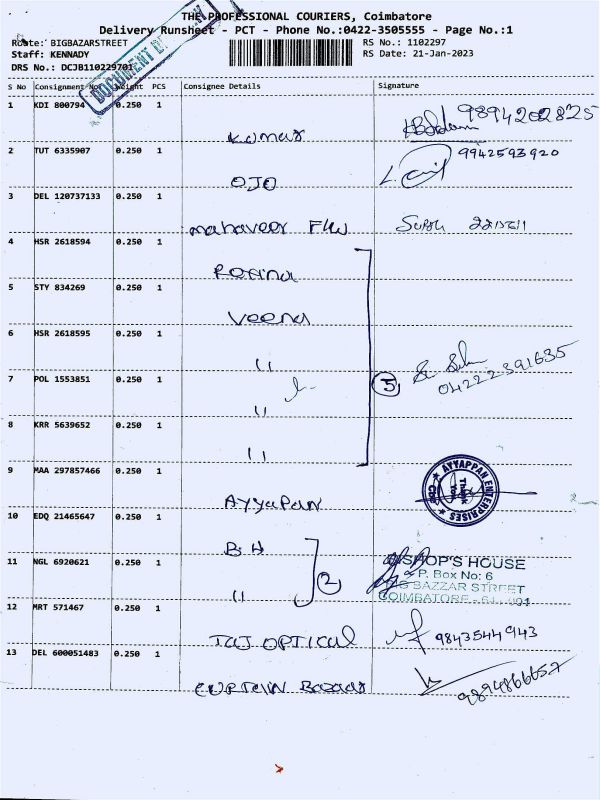 THE PROFESSIONAL COURIERS, Coimbatore
Delivery Runsheet - PCT - Phone No.:0422-3505555 - Page No.:1
Route: BIGBAZARSTREET
RS No.: 1102297
Staff: KENNADY
RS Date: 21-Jan-2023
DRS No.: DCJB110229701
DOCUMENT
S No Consignment No Weight PCS Consignee Details Signature
1 KDI 800794 0.250 1
Kumar 9894202825
2 TUT 6335907 0.250 1
OJO 9942593920
3 DEL 120737133 0.250 1
mahaveer
4 HSR 2618594 0.250 1
5 STY 834269 0.250 1
Veena
6 HSR 2618595 0.250 1
"
7 POL 1553851 0.250 1
" 5 04222391635
8 KRR 5639652 0.250 1
"
9 MAA 297857466 0.250 1
AYYAPAN
AYYAPPAH ENTERPRISES
10 EDQ 21465647 0.250 1
BH
11 NGL 6920621 0.250 1
" 2
BISHOP'S HOUSE
P. Box No: 6
BIG BAZZAR STREET
COIMBATORE - 641 001
12 MRT 571467 0.250 1
TAJ OPTICAL 9843544943
13 DEL 600051483 0.250 1
CURTAIN Bazaar 9894866657